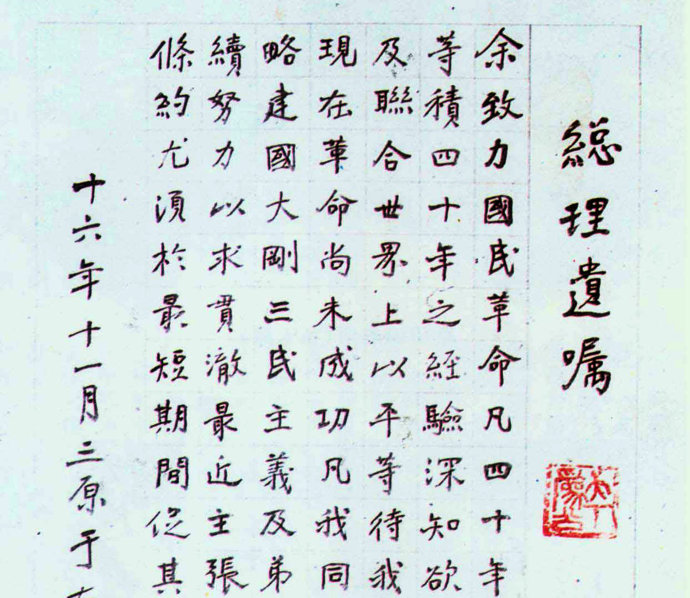 総理遺嘱
余致力國民革命凡四十年
等積四十年之経驗深知欲
及聯合世界上以平等待我
現在革命尚未成功凡我同
略建國大剛三民主義及弟
續努力以求貫澈最近主張
條約尤須於最短期間促其
十六年十一月三原于